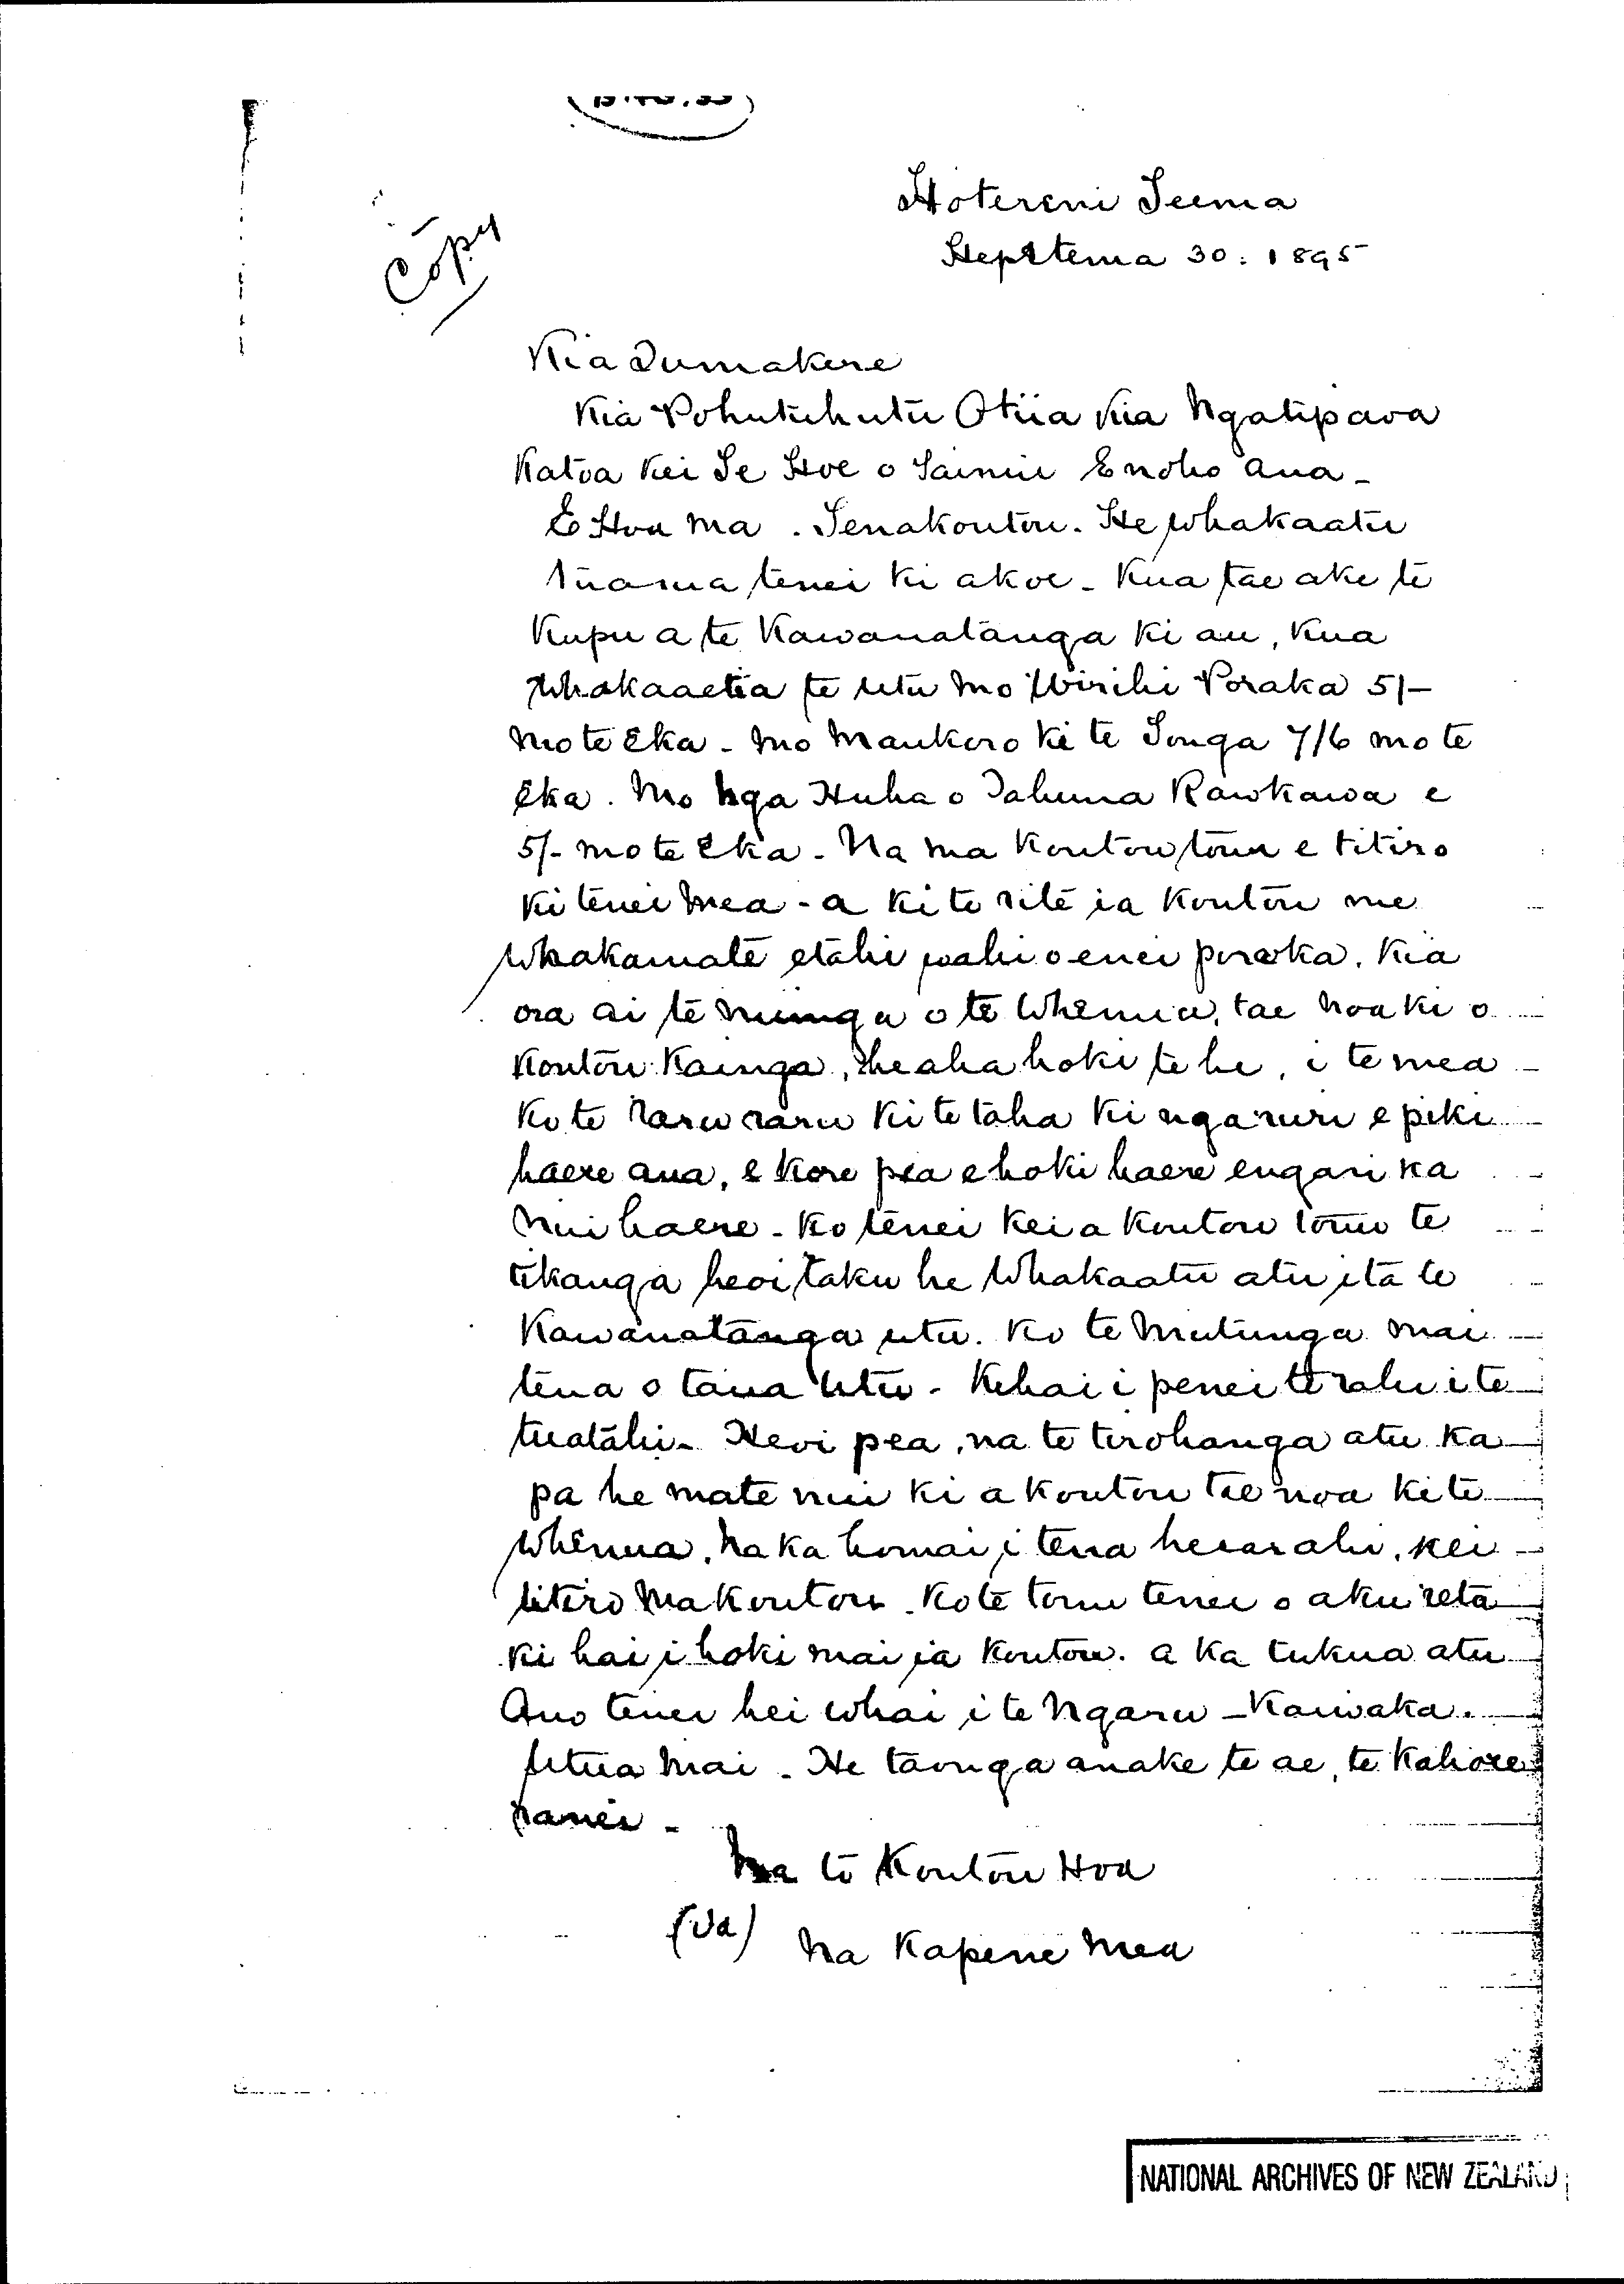 Copy
Hotereni Teema
Heptema 30: 1895
Kia Tumakere
Kia Pohutuhutu Otiia Kia Ngatipava
Katoa Kei Te Hoe o Tainui E noho ana -
E Hoa ma. Tenakoutou. He whakaatu
tenei ki a koe - Kua tae ake te
Kupu a te Kawanatanga ki au, Kua
Whakaaetia te utu mo Wirihi Poraka 5/-
mo te Eka - mo Maukoro ki te Tonga 7/6 mo te
Eka. Mo Nga Huha o Tahuna Rawkawa e
5/- mo te Eka - Na ma Koutou tonu e titiro
ki tenei Mea - a ki te rite ia Koutou me
Whakamate etahi wahi o enei poraka. Kia
ora ai te nuinga o te Whenua, tae noa ki o
Koutou Kainga, he aha hoki te he, i te mea
Ko te raruraru ki te taha ki nga ruri e piki
haere ana, e kore pea e hoki haere engari ka
Nui haere - Ko tenei Kei a Koutou tonu te
tikanga heoi taku he Whakaatu atu i ta te
Kawanatanga utu. Ko te Mutunga mai
tena o tana Utu - Kihai i penei te rahi i te
tuatahi - Heoi pea, na te tirohanga atu ka
pa he mate nui ki a Koutou tae noa ki te
Whenua, Na ka homai i tena he rahi, kei
titiro Ma Koutou - Ko te toru tenei o aku reta
ki hai i hoki mai ia Koutou. a ka tukua atu
Ano tenei hei whai i te Ngaru - Kaiwaka.
Utua Mai - He taonga anake te ae, te Kahore
ranei -
Na to Koutou Hoa
Na Kapene Mea
NATIONAL ARCHIVES OF NEW ZEALAND